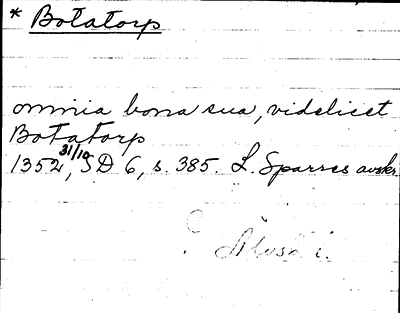 * Botatorp
omnia bona sua, videlicet
Botatorp
1352 31/10, SD 6, s. 385. L. Sparres avskr.